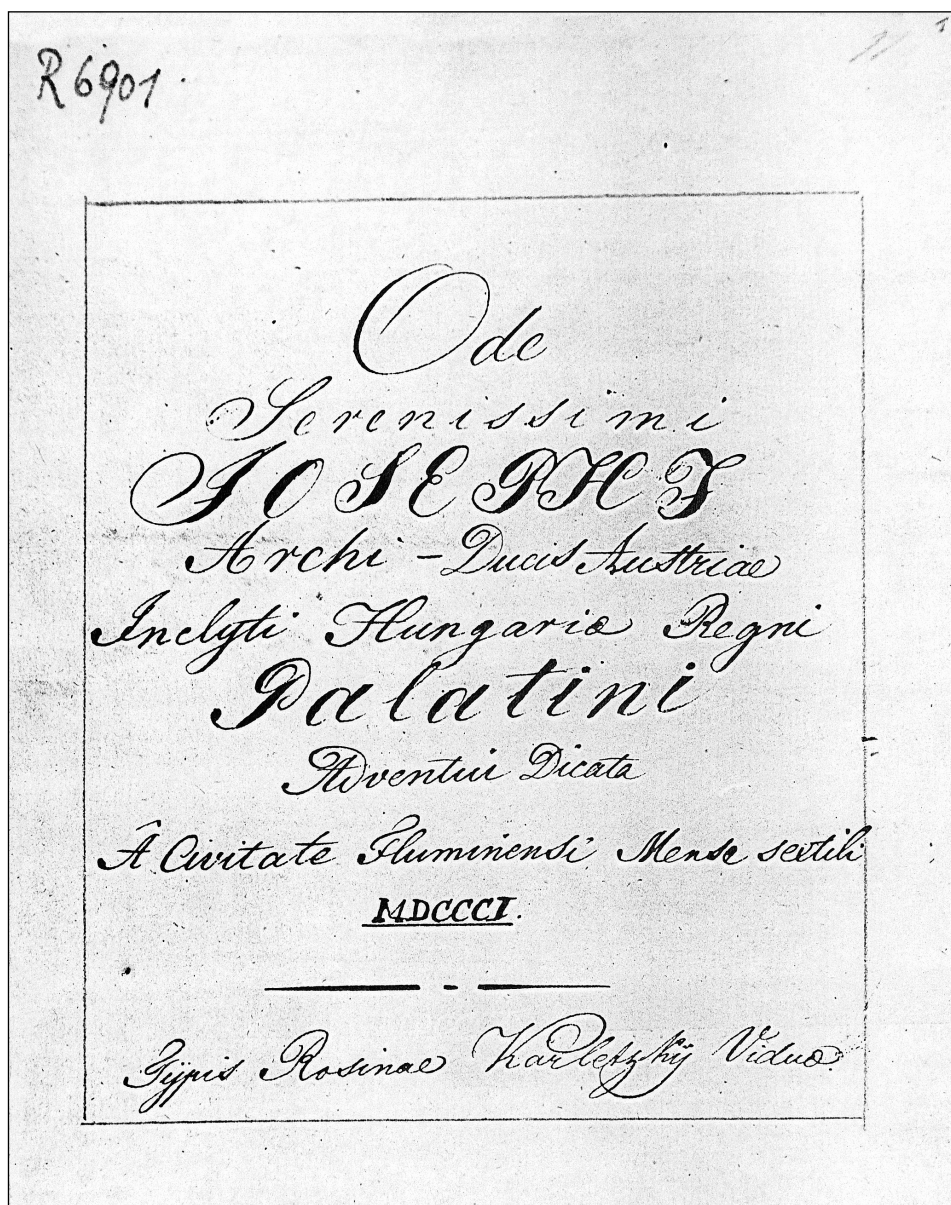 R 6901.
1
11
Ode
Serenissimi
IOSEPHI
Archi-Ducis Austriae
Inclyti Hungariæ Regni
Palatini
Adventui Dicata
Â Civitate Fluminensi Mense sextili
MDCCCI.
Typis Rosinae Karletzkÿ Viduæ.